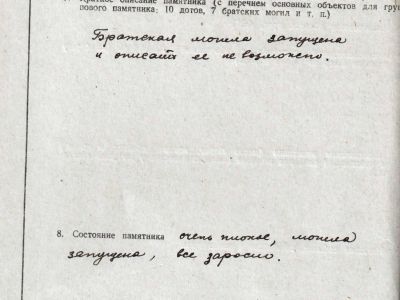 Краткое описание памятника (с перечнем основных объектов для груп
пового памятника: 10 дотов, 7 братских могил и т. п.)
Братская могила запущена
и описать ее не возможно.
8. Состояние памятника очень плохое, могила
запущена, все заросло.